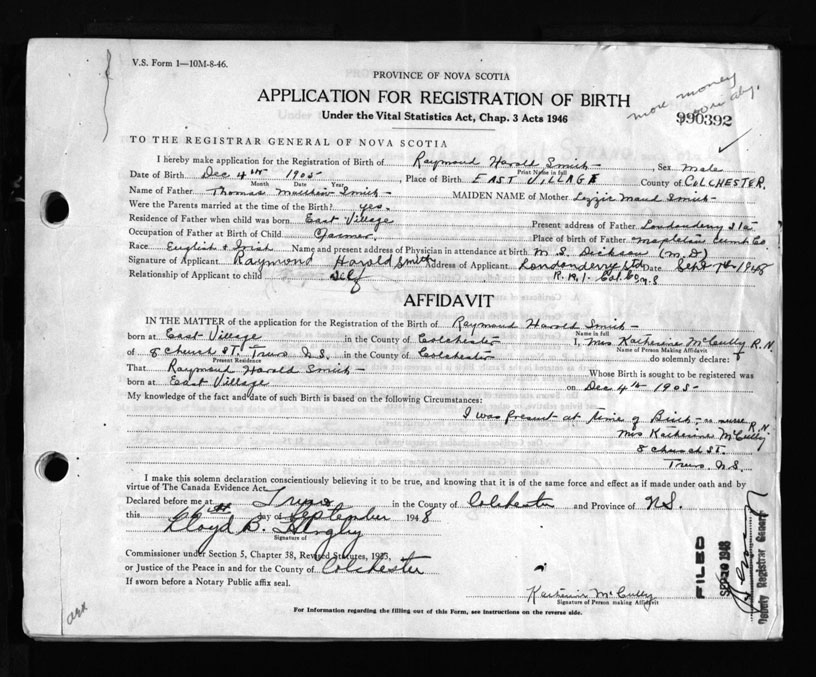 V.S. Form 1—10M-8-46.
PROVINCE OF NOVA SCOTIA
more money
APPLICATION FOR REGISTRATION OF BIRTH
Under the Vital Statistics Act, Chap. 3 Acts 1946
990392
TO THE REGISTRAR GENERAL OF NOVA SCOTIA
I hereby make application for the Registration of Birth of Raymond Harold Smith , Sex Male
Print Name in full
Date of Birth Dec 4th 1905 , Place of Birth EAST VILLAGE County of COLCHESTER,
Month Date Year
Name of Father Thomas Smith MAIDEN NAME of Mother Lizzie Maud Smith
Were the Parents married at the time of the Birth? yes.
Residence of Father when child was born East Village Present address of Father Londonderry Sta.
Occupation of Father at Birth of Child Farmer. Place of birth of Father Mapleton Cumb Co.
Race English & Irish Name and present address of Physician in attendance at birth M. S. Dickson (M.D)
Signature of Applicant Raymond Harold Smith Address of Applicant Londonderry Std Date Sept 7th 1948
Relationship of Applicant to child Self R.R.1. Col. Co. N.S
AFFIDAVIT
IN THE MATTER of the application for the Registration of Birth of Raymond Harold Smith
Name in full
born at East Village in the County of Colchester I, Mrs Katherine McCully R.N.
Name of Person Making Affidavit
of 8 Church ST. Truro N.S. in the County of Colchester do solemnly declare:
Present Residence
That Raymond Harold Smith Whose Birth is sought to be registered was
born at East Village on Dec 4th 1905
My knowledge of the fact and date of such Birth is based on the following Circumstances:
I was present at time of Birth – as nurse R.N.
Mrs Katherine McCully
8 Church ST.
Truro N.S.
I make this solemn declaration conscientiously believing it to be true, and knowing that it is of the same force and effect as if made under oath and by
virtue of The Canada Evidence Act.
Declared before me at Truro in the County of Colchester and Province of N.S.
this day of September 1948
Lloyd B.
Signature of
Commissioner under Section 5, Chapter 38, Revised Statutes, 1923,
or Justice of the Peace in and for the County of Colchester
If sworn before a Notary Public affix seal.
Katherine McCully
Signature of Person making Affidavit
For Information regarding the filling out of this Form, see instructions on the reverse side.
FILED
SEP 10 1948
Deputy Registrar General